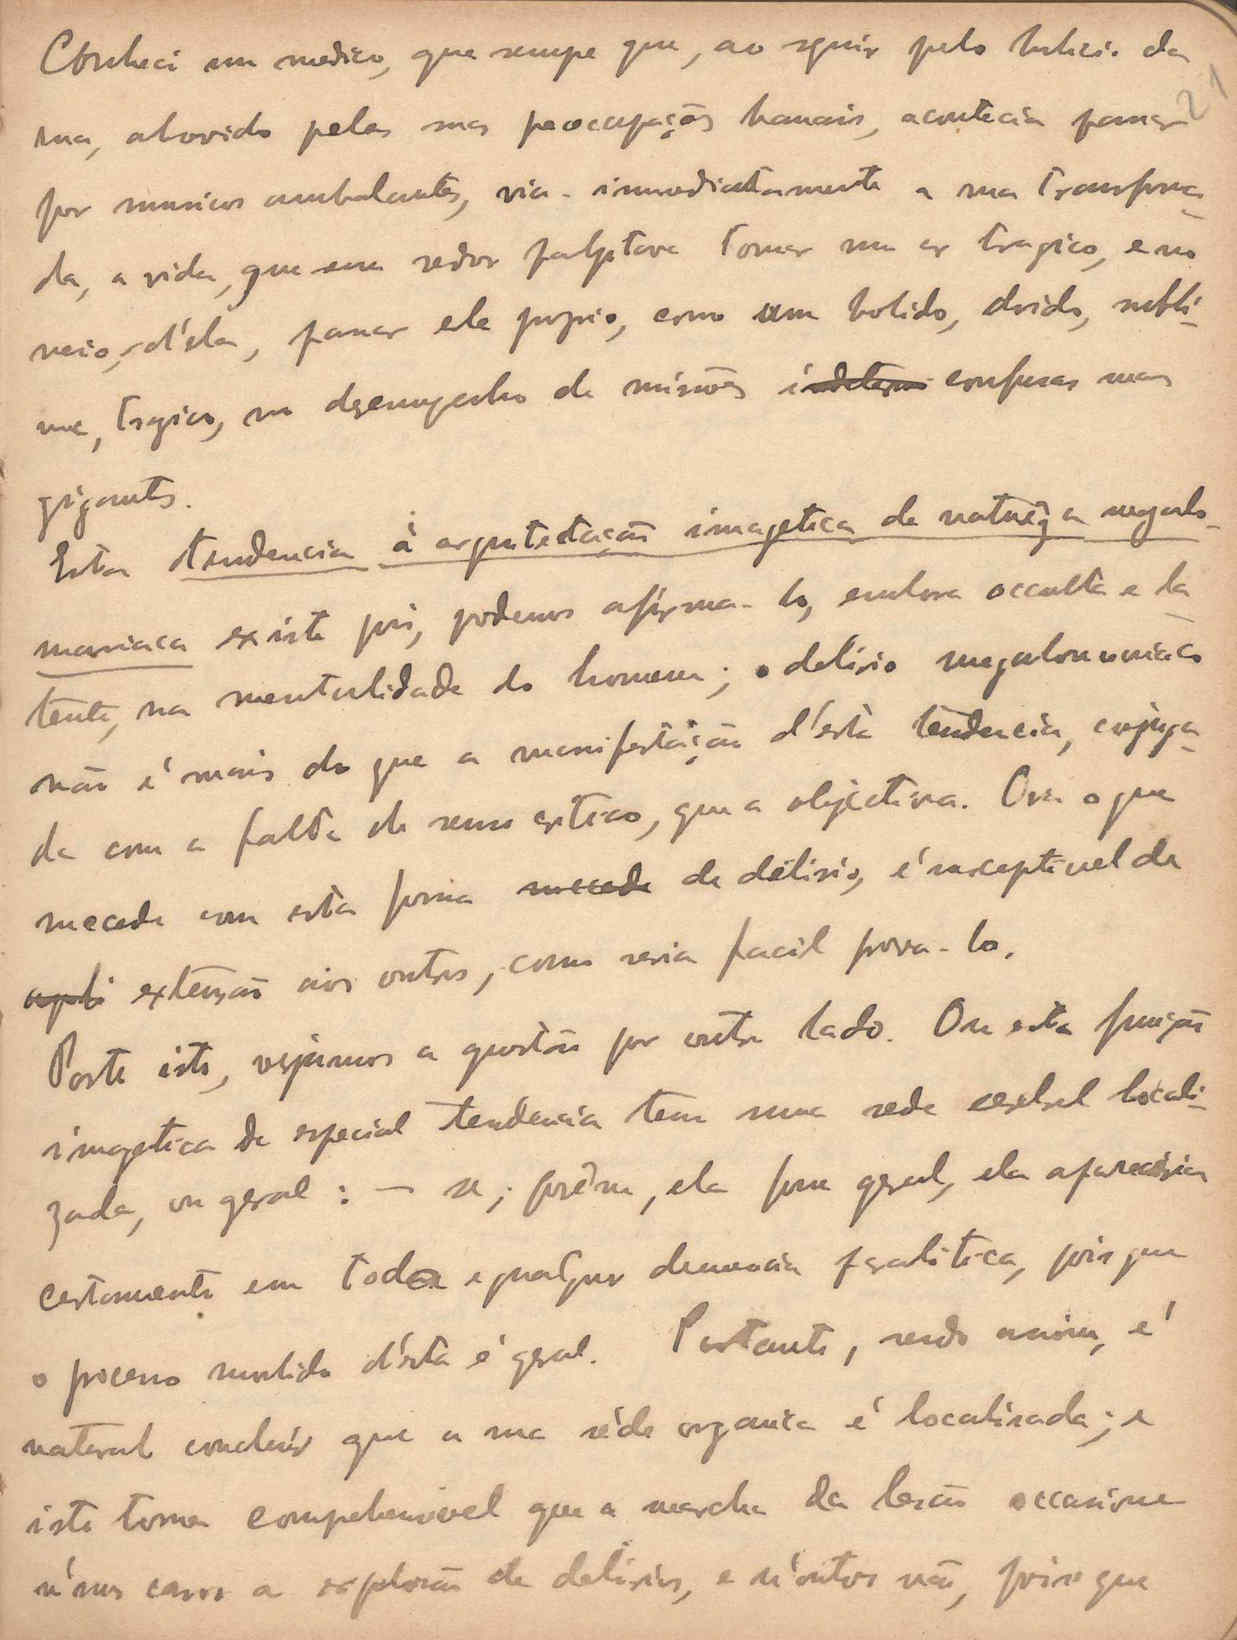 Conheci um medico, que sempre que, ao seguir pelo bulicio da
21
rua, absorvido pelas suas preoccupações banais, acontecia passar
por musicos ambulantes, via immediatamente a rua transforma-
da, a vida, que em redor palpitava tomar um ar tragico, e no
meio, d'ela, passar ele proprio, como um bolido, doido, subli-
me, tragico, no desempenho de missões indeterm confusas mas
gigantes.
Esta tendencia á arquitectação imagetica de naturêza megalo-
maniaca existe pois, podemos afirma-lo, embora occulta e la-
tente, na mentalidade do homem; o delirio megalomaniaco
não é mais do que a manifestação d'esta tendencia, conjuga-
da com a falta de senso critico, que a objectiva. Ora o que
sucede com esta forma sucede de delirio, é susceptivel de
apli extensão aos outros, como seria facil prova-lo.
Posto isto, vejamos a questão por outro lado. Ou esta função
imagetica de especial tendencia tem uma sede cerebral locali-
zada, ou geral: — se, porêm, ela fosse geral, ela apareceria
certamente em toda e qualquer demencia paralitica, pois que
o processo morbido d'esta é geral. Portanto, sendo assim, é
natural concluir que a sua séde organica é localisada; e
isto torna comprehensivel que a marcha da lesão occasione
n'uns casos a explosão de delirios, e n'outros não, pois que